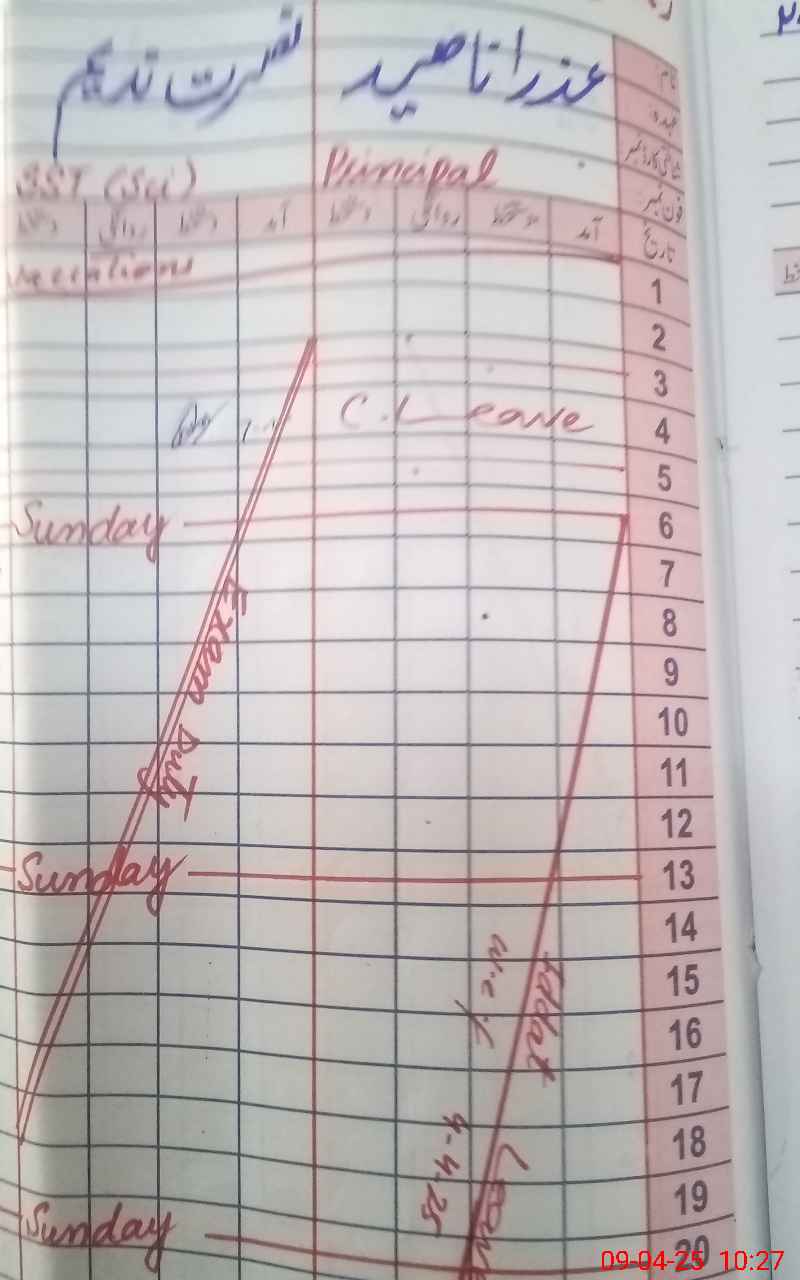 عذرا ناھید نصرت ندیم
نام
عہدہ
شناختی کارڈ نمبر
Principal SST (Sci)
فون نمبر
تاریخ آمد دستخط روانگی دستخط آمد دستخط روانگی دستخط
1
2
3
4 C.Leave
5
Sunday 6
7
8
9
10
11
12
Sunday 13
14
15
16
17
18
19
Sunday 20
Exam Duty
Iddat Leave
w.e.f 4-4-25
09-04-25 10:27